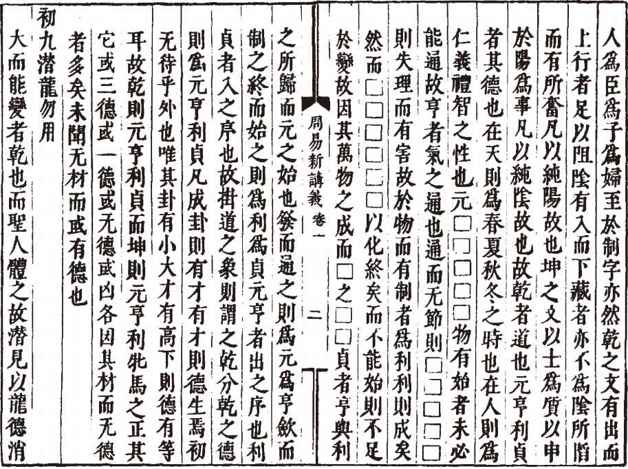 人為臣為子為婦至於制字亦然乾之文有出而
上行者足以阻陰有入而下藏者亦不為陰所
而有所奮凡以純陽故也坤之文以土為質以申
於陽為事凡以純陰故也故乾者道也元亨利貞
者其德也在天則為春夏秋冬之時也在人則為
仁義禮智之性也元□□□□□物有始者未必
能通故亨者氣之通也通而无節則□□□□
則失理而有害故於物而有制者為利利則成矣
然而□□□□□□以化終矣而不能始則不足
於變故因其萬物之成而□之□□貞者亨與利
周易新講義 卷一 二
之所歸而元之始也發而通之則為元為亨歛而
制之終而始之則為利為貞元亨者出之序也利
貞者入之序也故掛道之象則謂之乾分乾之德
則為元亨利貞凡成卦則有才有才則德生焉初
无待乎外也唯其卦有小大才有高下則德有等
耳故乾則元亨利貞而坤則元亨利牝馬之正其
它或三德或一德或无德或凶各因其材而无德
者多矣未聞无材而或有德也
初九潛龍勿用
大而能變者乾也而聖人體之故潛見以龍德消